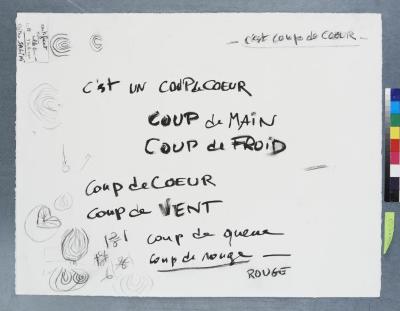 — c'est coup de COEUR —
c'est UN COUP de COEUR
COUP de MAIN
COUP de FROID
Coup de COEUR
Coup de VENT
coup de queue
coup de rouge —
ROUGE